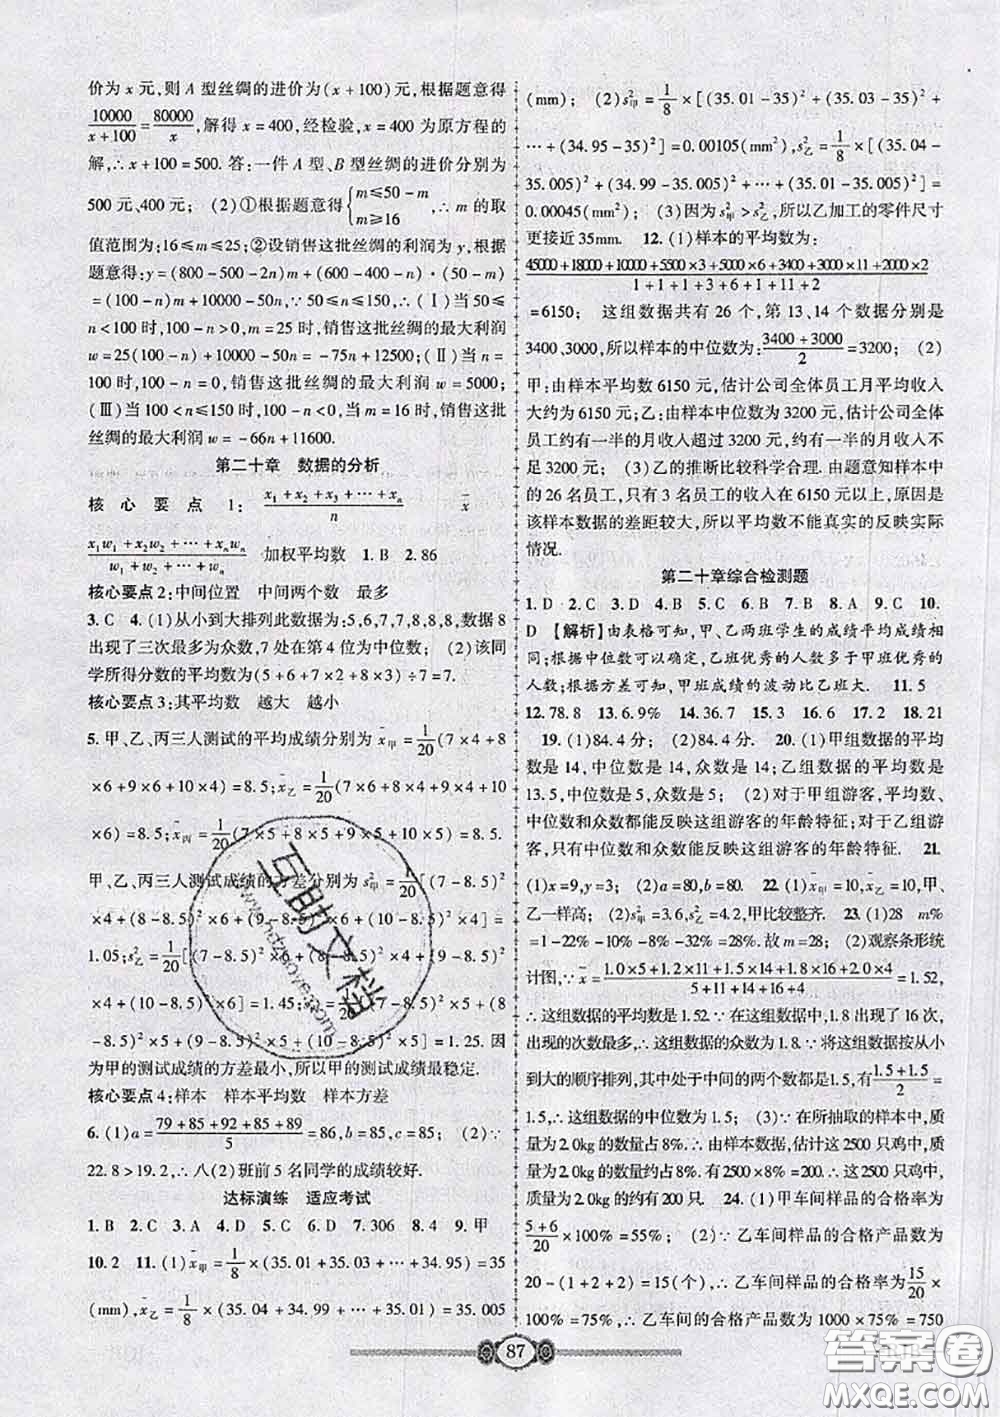 价为 x 元,则 A 型丝绸的进价为(x+100)元,根据题意得
10000/(x+100)=80000/x,解得 x=400,经检验,x=400 为原方程的
解,∴x+100=500. 答:一件 A 型、B 型丝绸的进价分别为
500 元、400 元; (2)①根据题意得{m≤50-m m≥16,∴m 的取
值范围为:16≤m≤25;②设销售这批丝绸的利润为 y,根据
题意得:y=(800-500-2n)m+(600-400-n)·(50-m)
=(100-n)m+10000-50n,∵50≤n≤150,∴(Ⅰ)当50≤
n<100 时,100-n>0,m=25 时,销售这批丝绸的最大利润
w=25(100-n)+10000-50n=-75n+12500;(Ⅱ)当 n=
100 时,100-n=0,销售这批丝绸的最大利润 w=5000;
(Ⅲ)当100<n≤150 时,100-n<0,当 m=16 时,销售这批
丝绸的最大利润 w=-66n+11600.
第二十章 数据的分析
核心要点 1: (x₁+x₂+x₃+⋯+xₙ)/n x̄
(x₁w₁+x₂w₂+⋯+xₙwₙ)/(w₁+w₂+⋯+wₙ) 加权平均数 1. B 2. 86
核心要点 2:中间位置 中间两个数 最多
3. C 4. (1)从小到大排列此数据为:5,6,7,7,8,8,8,数据 8
出现了三次最多为众数,7 处在第 4 位为中位数; (2)该同
学所得分数的平均数为(5+6+7×2+8×3)÷7=7.
核心要点 3:其平均数 越大 越小
5. 甲、乙、丙三人测试的平均成绩分别为 x̄甲=1/20(7×4+8
×6+9×6+10×4)=8.5;x̄乙=1/20(7×5+8×5+9×5+10
×6)=8.5;x̄丙=1/20(7×5+8×5+9×5+10×5)=8.5.
甲、乙、丙三人测试成绩的方差分别为 s²甲=1/20[(7-8.5)²
×4+(8-8.5)²×6+(9-8.5)²×6+(10-8.5)²×4]=
1.05;s²乙=1/20[(7-8.5)²×5+(8-8.5)²×5+(9-8.5)²
×4+(10-8.5)²×6]=1.45;=1/20[(7-8.5)²×5+(8
-8.5)²×5+(9-8.5)²×5+(10-8.5)²×5]=1.25. 因
为甲的测试成绩的方差最小,所以甲的测试成绩最稳定.
核心要点 4:样本 样本平均数 样本方差
6. (1)a=(79+85+92+85+89)/5=86,b=85,c=85; (2)∵
22.8>19.2,∴八(2)班前 5 名同学的成绩较好.
达标演练 适应考试
1. B 2. C 3. A 4. D 5. C 6. D 7. 306 8. 4 9. 甲
10. 2 11. (1)x̄甲=1/8×(35.01+35.03+⋯+34.95)=35
(mm),x̄乙=1/8×(35.04+34.99+⋯+35.01)=35.005
(mm); (2)s²甲=1/8×[(35.01-35)²+(35.03-35)²+
⋯+(34.95-35)²]=0.00105(mm²),s²乙=1/8×[(35.04-
35.005)²+(34.99-35.005)²+⋯+(35.01-35.005)²]=
0.00045(mm²) (3)因为 s²甲>s²乙,所以乙加工的零件尺寸
更接近 35mm. 12. (1)样本的平均数为:
(45000+18000+10000+5500×3+5000×6+3400+3000×11+2000×2)/(1+1+1+3+6+1+11+2)
=6150; 这组数据共有 26 个,第 13、14 个数据分别是
3400,3000,所以样本的中位数为:(3400+3000)/2=3200; (2)
甲:由样本平均数 6150 元,估计公司全体员工月平均收入
大约为 6150 元;乙:由样本中位数为 3200 元,估计公司全体
员工约有一半的月收入超过 3200 元,约有一半的月收入不
足 3200 元; (3)乙的推断比较科学合理. 由题意知样本中
的 26 名员工,只有 3 名员工的收入在 6150 元以上,原因是
该样本数据的差距较大,所以平均数不能真实的反映实际
情况.
第二十章综合检测题
1. D 2. C 3. C 4. B 5. B 6. D 7. B 8. A 9. C 10.
D 【解析】由表格可知,甲、乙两班学生的成绩平均成绩相
同;根据中位数可以确定,乙班优秀的人数多于甲班优秀的
人数;根据方差可知,甲班成绩的波动比乙班大. 11. 5
12. 78.8 13. 6.9% 14. 36.7 15. 3 16. 6 17. 2 18. 21
19. (1)84.4 分; (2)84.4 分. 20. (1)甲组数据的平均
数是 14,中位数是 14,众数是 14;乙组数据的平均数是
13.5,中位数是 5,众数是 5; (2)对于甲组游客,平均数、
中位数和众数都能反映这组游客的年龄特征;对于乙组游
客,只有中位数和众数能反映这组游客的年龄特征. 21.
(1)x=9,y=3; (2)a=80,b=80. 22. (1)x̄甲=10,x̄乙=10,甲、
乙一样高; (2)s²甲=3.6,s²乙=4.2,甲比较整齐. 23. (1)28 m%
=1-22%-10%-8%-32%=28%. 故 m=28; (2)观察条形统
计图,∵x̄=(1.0×5+1.2×11+1.5×14+1.8×16+2.0×4)/(5+11+14+16+4)=1.52,
∴这组数据的平均数是 1.52. ∵在这组数据中,1.8 出现了 16 次,
出现的次数最多,∴这组数据的众数为 1.8. ∵将这组数据按从小
到大的顺序排列,其中处于中间的两个数都是 1.5,有(1.5+1.5)/2=
1.5,∴这组数据的中位数为 1.5; (3)∵在所抽取的样本中,
质量为 2.0kg 的数量占 8%. ∴由样本数据,估计这 2500 只鸡中,质
量为 2.0kg 的数量约占 8%. ∴2500×8%=200,∴这 2500 只鸡中,
质量为 2.0kg 的约有 200 只. 24. (1)甲车间样品的合格率为
(5+6)/20×100%=55%; (2)∵乙车间样品的合格产品数为
20-(1+2+2)=15(个),∴乙车间样品的合格率为 15/20×
100%=75%,∴乙车间的合格产品数为 1000×75%=750
87
互助文档
答案圈
MXQE.COM